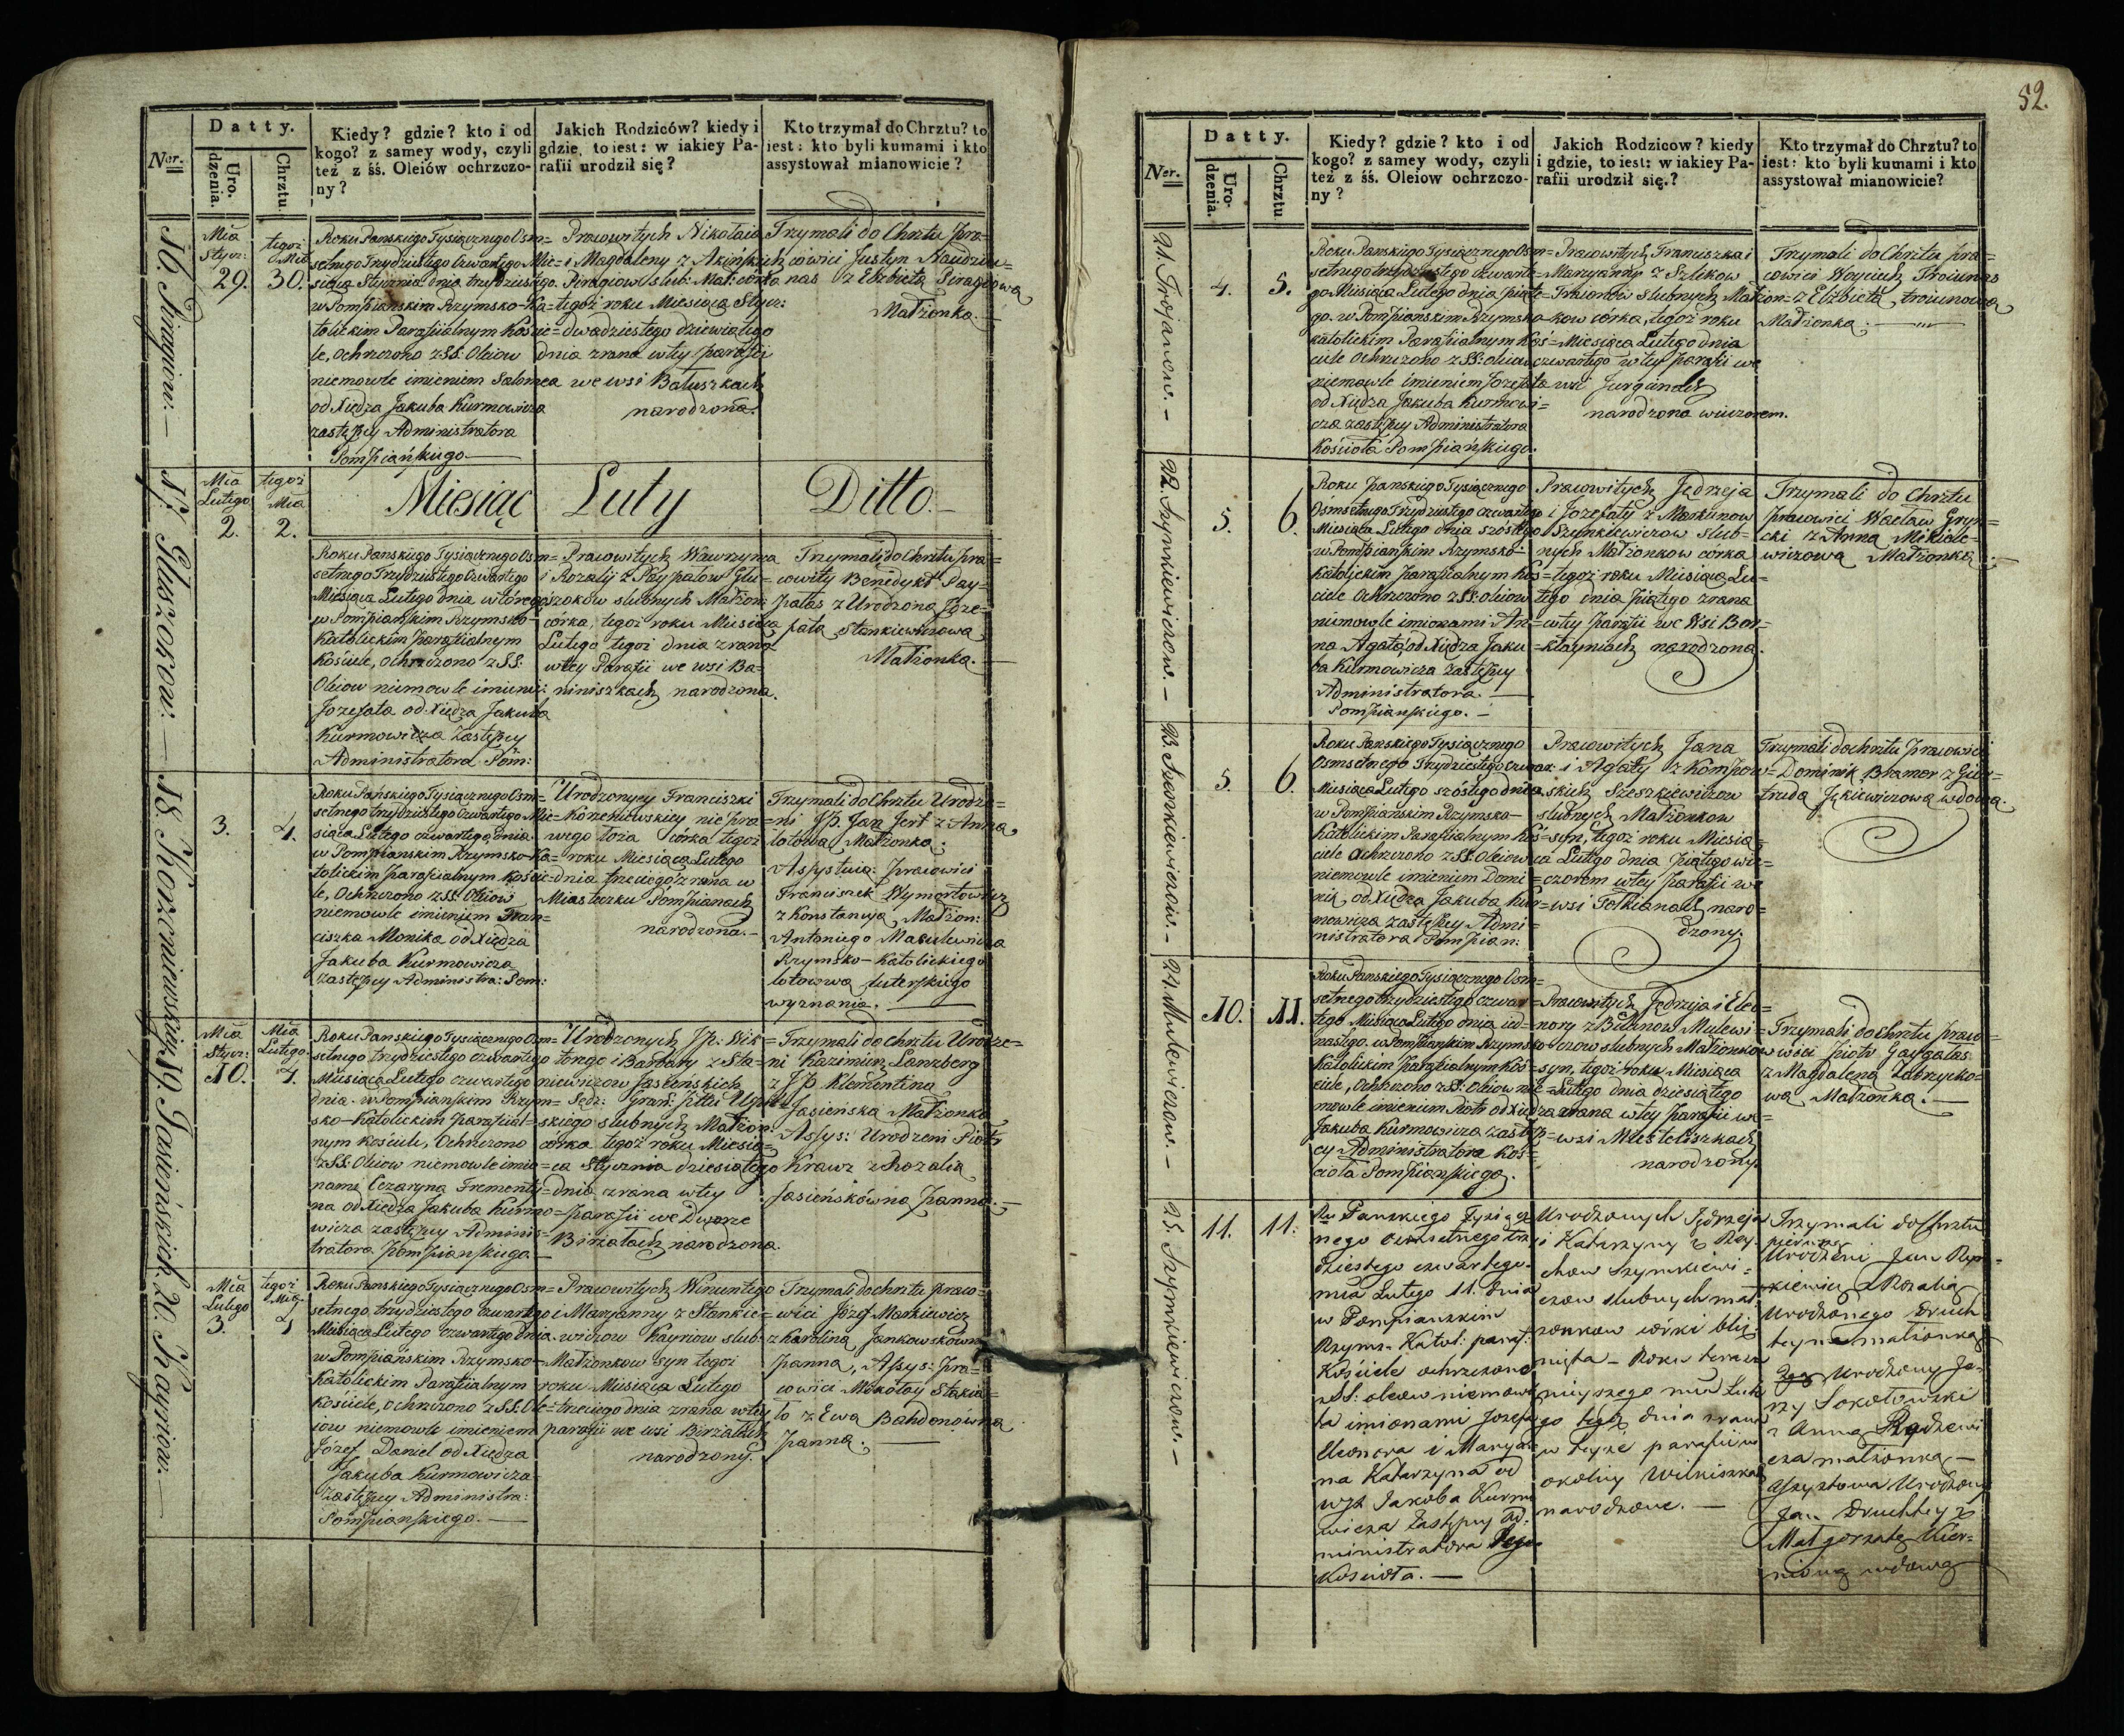 52.
Datty.
Ner.
Uro-
dzenia.
Chrztu
Kiedy? gdzie? kto i od
kogo? z samey wody, czyli
też z śś. Oleiów ochrzczo-
ny?
Jakich Rodziców? kiedy i
gdzie, to iest: w iakiey Pa-
rafii urodził się?
Kto trzymał do Chrztu? to
iest: kto byli kumami i kto
assystował mianowicie?
16. Piragiow. —
Mia
Stycz:
29.
tegoż
Mia
30.
Roku Pańskiego Tysiącznego Osm=
setnego Trzydziestego Czwartego Mie=
siąca Stycznia dnia trzydziestego
w Pompiańskim Rzymsko-Ka=
tolickim Parafiialnym Koście=
le, Ochrzczono z SS. Oleiow
niemowle imieniem Salomea
od Xiędza Jakuba Kurmowicza
zastępcy Administratora
Pompiańskiego. —
Pracowitych Nikołaia
i Magdaleny z
Piragiow slub: Małż: córka
tegoż roku Miesiąca Stycz:
dwadziestego dziewiątego
dnia zrana w tey Parafii
we wsi Bałuszkach
narodzona.
Trzymali do Chrztu Pra=
cowici Justyn
nas z Elżbietą Piragiową
Małżonką. —
17. Głuszokow. —
Mia
Lutego
2.
tegoż
Mia
2.
Miesiąc Luty Ditto. —
Roku Pańskiego Tysiącznego Osm=
setnego Trzydziestego Czwartego
Miesiąca Lutego dnia wtórego
w Pompiańskim Rzymsko-
Katolickim Parafiialnym
Kościele, ochrzczono z SS:
Oleiow niemowle imieniē:
Jozefata od Xiędza Jakuba
Kurmowicza Zastępcy
Administratora Pom:
Pracowitych Wawrzyńca
i Rozalij z Paypałow Głu=
szoków slubnych Małżon:
córka, tegoż roku Miesiąca
Lutego tegoż dnia zrana
w tey Parafii we wsi Ba=
niniszkach narodzona.
Trzymali do Chrztu Pra=
cowity Benedykt Pay=
pałas z Urodzoną Joze=
fatą Stankiewiczową
Małżonką. —
18. Korzeniewskiey.
3.
4.
Roku Pańskiego Tysiącznego Osm=
setnego trzydziestego Czwartego Mie=
siąca Lutego czwartego dnia
w Pompianskim Rzymsko-Ka=
tolickim parafialnym Koście=
le, Ochrzczono z SS. Oleiow
niemowle imieniem Fran=
ciszka Monika od Xiędza
Jakuba Kurmowicza
Zastępcy Administra: Pom:
Urodzoney Franciszki
Korzeniowskiey nie pra=
wego łoża córka tegoż
roku Miesiąca Lutego
dnia trzeciego zrana w
Miasteczku Pompianach
narodzona. —
Trzymali do Chrztu Urodze=
ni JP. Jan Jert z Anną
Małżonką.
Assystuią: Pracowici
Franciszek Wymortowicz
z Konstancyą Małżon:
Antoniego
Rzymsko-Katolickiego
luterskiego
wyznania. —
19. Jasieńskich.
Mia
Stycz:
10.
Mia
Lutego.
4.
Roku Pańskiego Tysiącznego Osm=
setnego trzydziestego czwartego
Miesiąca Lutego czwartego
dnia w Pompianskim Rzym=
sko-Katolickim parafiial=
nym Kościele, Ochrzczono
z SS: Oleiow niemowle imio=
nami Cezaryna Frementy=
na od Xiędza Jakuba Kurmo=
wicza zastępcy Adminis=
tratora Pompianskiego —
Urodzonych JP. Wik=
torego i Barbary z Sta=
niewiczow Jasieńskich
Sędz: Gran: Pttu Upit=
skiego slubnych Małżon:
córka tegoż roku Miesią=
ca Stycznia dziesiątego
dnia zrana w tey
parafii we Dworze
Birżałach narodzona.
Trzymali do chrztu Urodze=
ni Kazimierz Lanzberg
z JP. Klementiną
Jasieńską Małżonką
Assys: Urodzeni Piotr
Krawz z Rozalią
Jasieńskówną Panną. —
20. Kayriow. —
Mia
Lutego
3.
tegoż
Mia
4
Roku Pańskiego Tysiącznego Osm=
setnego trzydziestego czwartego
Miesiąca Lutego czwartego dnia
w Pompiańskim Rzymsko-
Katolickim Parafiialnym
Kościele, ochrzczono z SS: Ole=
iow niemowle imieniem
Józef Daniel od Xiędza
Jakuba Kurmowicza
Zastępcy Administra:
Pompianskiego. —
Pracowitych Wincentego
i Maryanny z Stankie=
wiczow Kayriow slub:
Małżonkow syn tegoż
roku Miesiąca Lutego
trzeciego dnia zrana w tey
parafii we wsi Birżałach
narodzony.
Trzymali do chrztu praco=
wici Józef Markiewicz
z Karoliną Jankowskówną
Panną, Assys: Pra=
cowici Mikołay
z Ewą Bahdonówną
Panną. —
Datty.
Ner.
Uro-
dzenia.
Chrztu
Kiedy? gdzie? kto i od
kogo? z samey wody, czyli
też z śś. Oleiow ochrzczo-
ny?
Jakich Rodzicow? kiedy
i gdzie, to iest: w iakiey Pa-
rafii urodził się.?
Kto trzymał do Chrztu? to
iest: kto byli kumami i kto
assystował mianowicie?
21. Trojanow. —
4.
5.
Roku Pańskiego Tysiącznego Osm=
setnego trzydziestego czwarte=
go Miesiąca Lutego dnia piąte=
go w Pompianskim Rzymsko-
katolickim Parafiialnym Koś=
ciele Ochrzczono z SS: oleiow
niemowle imieniem Jozefata
od Xiędza Jakuba Kurmowi=
cza zastępcy Administratora
Kościoła Pompiańskiego.
Pracowitych Franciszka i
Maryanny z Szlekow
Troianów slubnych Małżon=
kow córka, tegoż roku
Miesiąca Lutego dnia
czwartego w tey parafii we
wsi Jurgunach
narodzona wieczorem.
Trzymali do Chrztu Pra=
cowici Woyciech Troiunas
z Elżbietą troiunową
Małżonką. —
22. Szynkiewiczow. —
5.
6.
Roku Pańskiego Tysiącznego
Ośmsetnego Trzydziestego czwartego
Miesiąca Lutego dnia szóstego
w Pompiańskim Rzymsko-
Katolickim parafialnym Koś=
ciele Ochrzczono z SS: oleiow
niemowle imionami An=
na Agata, od Xiędza Jaku=
ba Kurmowicza Zastępcy
Administratora. —
Pompianskiego. —
Pracowitych Jędrzeja
i Jozefaty z Markunow
Szynkiewiczow slub=
nych Małżonkow córka
tegoż roku Miesiąca Lu=
tego dnia piątego zrana
w tey parafii we Wsi Bor=
kłayniach narodzona.
Trzymali do Chrztu
Pracowici Wacław Gryn=
cki z Anną Mikiele=
wiczową Małżonką. —
23. Szeszkiewiczow. —
5.
6.
Roku Pańskiego Tysiącznego
Osmsetnego Trzydziestego czwar:
Miesiąca Lutego szóstego dnia
w Pompianskim Rzymsko-
Katolickim Parafialnym Koś=
ciele Ochrzczono z SS: Oleiow
niemowle imieniem Domi=
nik, od Xiędza Jakuba Kur=
mowicza zastępcy Admi=
nistratora Pompian:
Pracowitych Jana
i Agaty z Kompow=
skich Szeszkiewiczow
slubnych Małżonkow
syn, tegoż roku Miesią=
ca Lutego dnia piątego wie=
czorem w tey parafii we
wsi Tołkianach naro=
dzony.
Trzymali do chrztu Pracowici
Dominik Bramer z Gier=
trudą Jękiewiczową wdową.
24. Mulewiczow. —
10.
11.
Roku Pańskiego Tysiącznego Osm=
setnego trzydziestego czwar=
tego Miesiąca Lutego dnia ied=
nastego w Pompianskim Rzymsko
Katolickim Parafialnym Koś=
ciele, Ochrzczono z SS. Oleiow nie=
mowle imieniem Piotr od Xiędza
Jakuba Kurmowicza zastęp=
cy Administratora Koś=
cioła Pompiańskiego.
Pracowitych Jędrzeja i Eleo=
nory z Bitanow Mulewi=
czow slubnych Małżonkow
syn, tegoż roku Miesiąca
Lutego dnia dziesiątego
zrana w tey Parafii we
wsi Miesteliszkach
narodzony.
Trzymali do chrztu Praco=
wici Piotr Gaygałas
z Magdaleną Zabrycko=
wą Małżonką. —
25. Szymkiewiczow. —
11.
11.
Rku Panskiego Tysiącz
nego osmsetnego trzy
dziestego czwartego
mca Lutego 11. dnia
w Pompianskim
Rzyms. Katol: paraf:
Kościele ochrzczono
z SS. oleow niemowlę
ta imionami Jozefa
Eleonora i Marya=
na Katarzyna od
wyż Jakoba Kurmo
wicza Zastępcy Ad=
ministratora tego
Kościoła. —
Urodzonych Jędrzeja
i Katarzyny z Ray=
chow Szymkiewi=
czow slubnych mał
żonkow córki bliź
nięta — Roku teraz
nieyszego mca Lute
go tegoż dnia zrana
w teyże parafii w
okolicy Wilkiszkach
narodzone. —
Trzymali do chrztu
pierwszą
Urodzeni Jan
z Rozalią
Urodzonego Druch
teyna małżonką
Urodzony Je=
rzy Sokołowski
z Anną Rodziewi
cza małżonką —
assystowa Urodzony
Jan Druchtey z
Małgorzatą Kier=
nową wdową